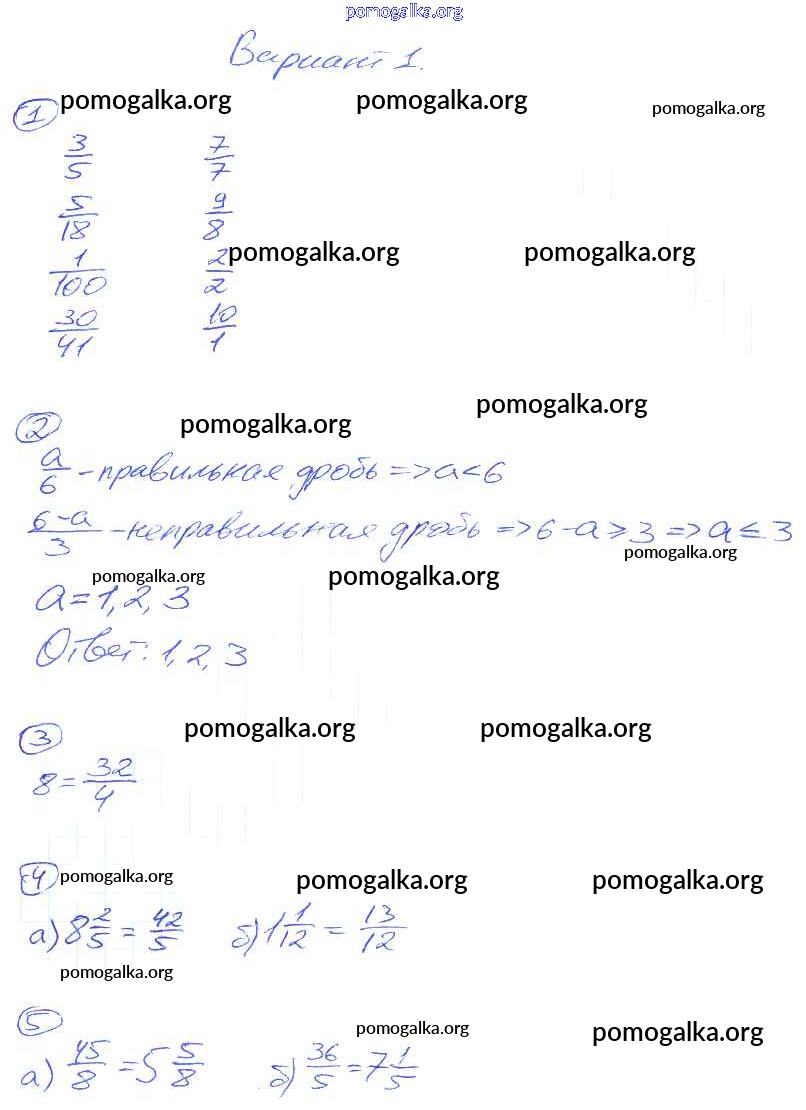 pomogalka.org
Вариант 1.
① pomogalka.org pomogalka.org pomogalka.org
3/5 7/7
5/18 9/8
pomogalka.org pomogalka.org
1/100 2/2
30/41 10/1
pomogalka.org
② pomogalka.org
a/6 - правильная дробь => a < 6
(6-a)/3 - неправильная дробь => 6-a ≥ 3 => a ≤ 3
pomogalka.org
pomogalka.org pomogalka.org
a = 1, 2, 3
Ответ: 1, 2, 3
③ pomogalka.org pomogalka.org
8 = 32/4
④ pomogalka.org pomogalka.org pomogalka.org
а) 8 2/5 = 42/5 б) 1 1/12 = 13/12
pomogalka.org
⑤ pomogalka.org pomogalka.org
а) 45/8 = 5 5/8 б) 36/5 = 7 1/5